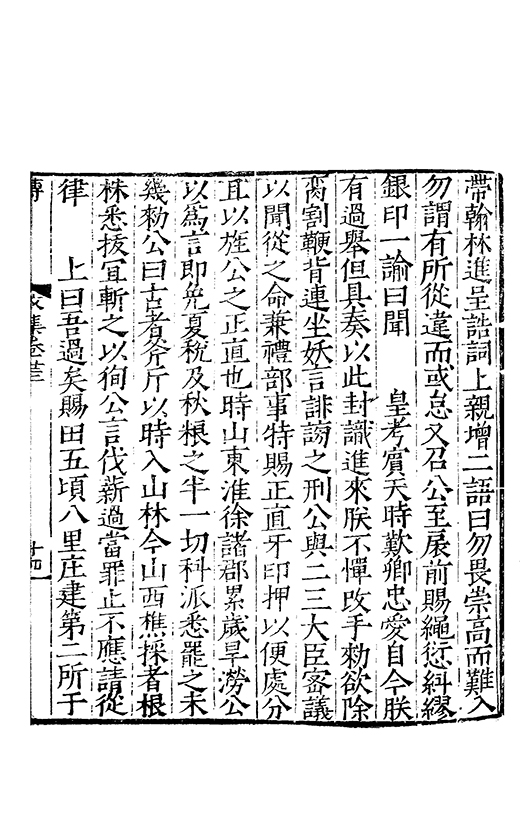 帶翰林進呈誥詞上親增二語曰勿畏崇高而難入
勿謂有所從違而或怠又召公至扆前賜繩愆糾繆
銀印一諭曰聞　皇考賓天時歎卿忠愛自今朕
有過舉但具奏以此封識進來朕不憚改手勑欲除
臠割鞭背連坐妖言誹謗之刑公與二三大臣密議
以聞從之命兼禮部事特賜正直牙印押以便處分
且以旌公之正直也時山東淮徐諸郡累歲旱澇公
以爲言即免夏稅及秋粮之半一切科派悉罷之未
幾勑公曰古者斧斤以時入山林今山西樵採者根
株悉拔宜斬之以徇公言伐薪過當罪止不應請從
律　上曰吾過矣賜田五頃八里庄建第二所于
文集卷三
十四